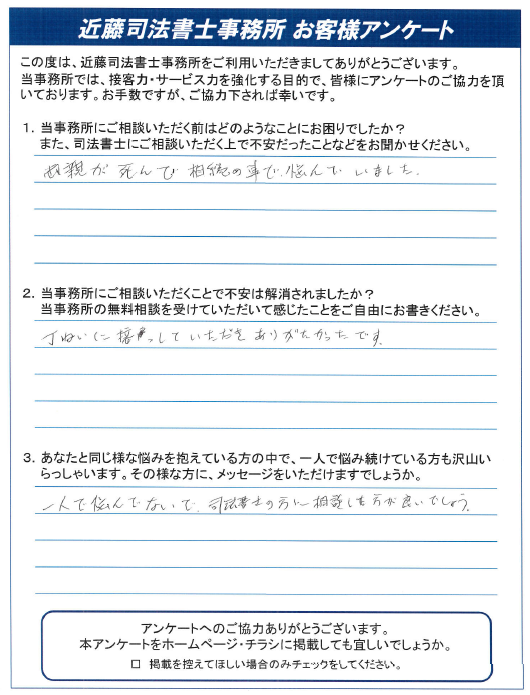 近藤司法書士事務所 お客様アンケート
この度は、近藤司法書士事務所をご利用いただきましてありがとうございます。
当事務所では、接客力・サービス力を強化する目的で、皆様にアンケートのご協力を頂
いております。お手数ですが、ご協力下されば幸いです。
1. 当事務所にご相談いただく前はどのようなことにお困りでしたか？
また、司法書士にご相談いただく上で不安だったことなどをお聞かせください。
母親が死んで相続の事で、悩んでいました。
2. 当事務所にご相談いただくことで不安は解消されましたか？
当事務所の無料相談を受けていただいて感じたことをご自由にお書きください。
丁ねいに接っしていただきありがたかったです。
3. あなたと同じ様な悩みを抱えている方の中で、一人で悩み続けている方も沢山い
らっしゃいます。その様な方に、メッセージをいただけますでしょうか。
一人で悩んでないで、司法書士の方に相談した方が良いでしょう。
アンケートへのご協力ありがとうございます。
本アンケートをホームページ・チラシに掲載しても宜しいでしょうか。
□ 掲載を控えてほしい場合のみチェックをしてください。